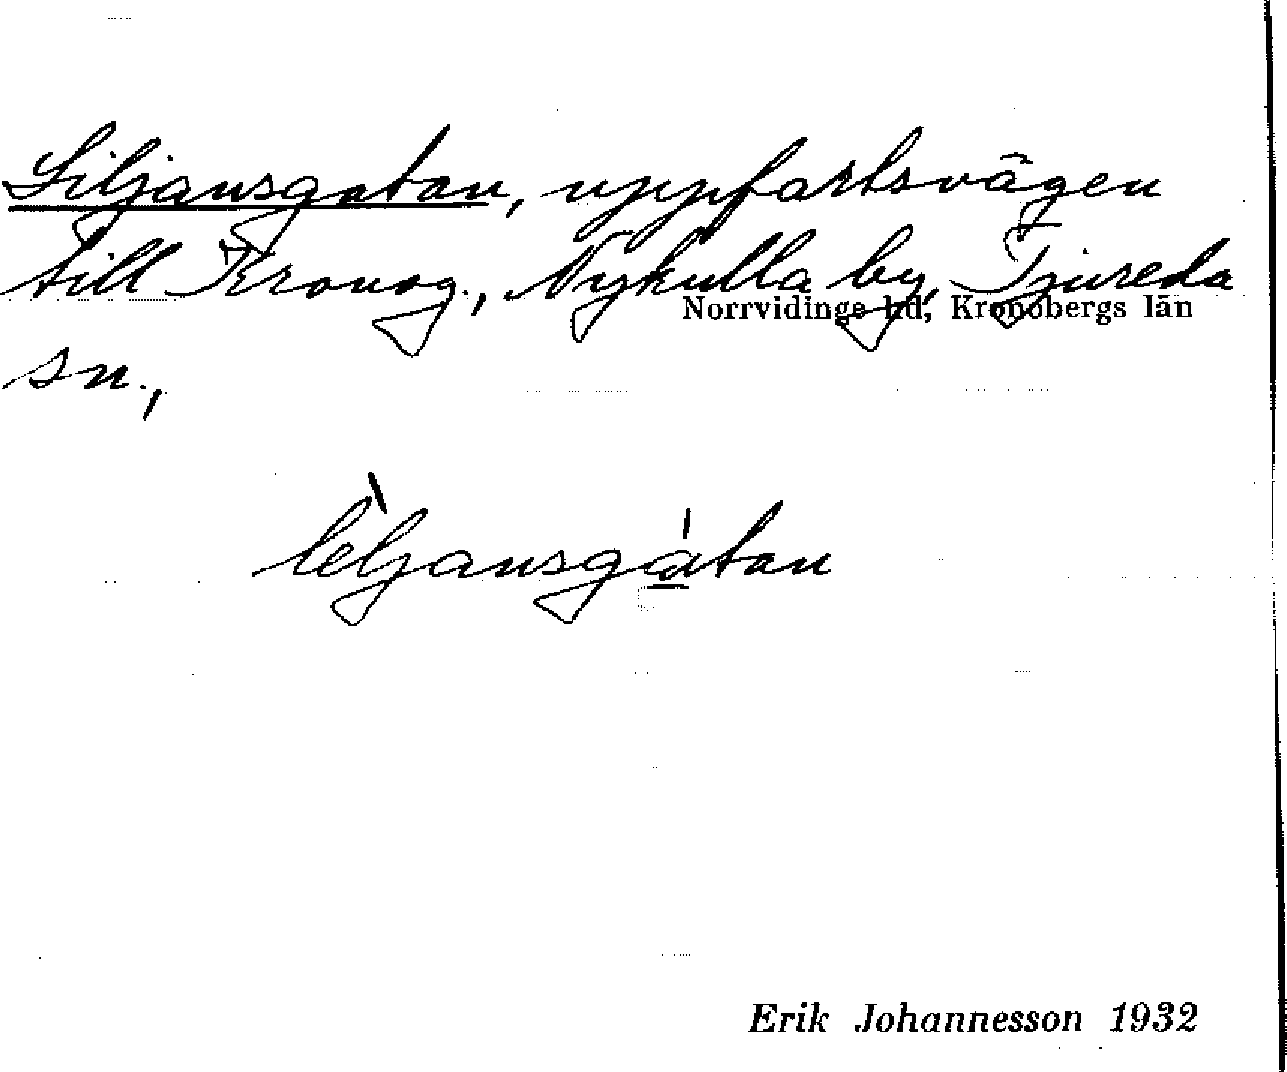 Liljansgatan, uppfartsvägen
till Kronog., Nykulla by, Tjureda
Norrvidinge hd, Kronobergs län
sn.,
lèljansgátan
Erik Johannesson 1932